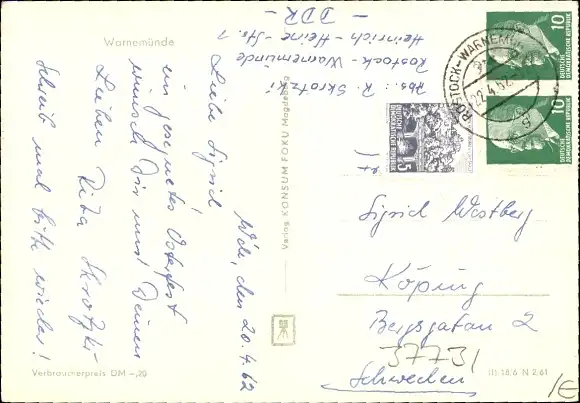 Warnemünde
W'de, den 20.4.62
Liebe Sigrid!
ein gesegnetes Osterfest
wünsch Dir und Deinen
Lieben Rita Skrotzki
Schreib mal bitte wieder!
Verbraucherpreis DM -,20
Verlag KONSUM FOKU Magdeburg
Abs.: R. Skrotzki
Rostock-Warnemünde
Heinrich-Heine-Str. 1
- DDR -
10
DEUTSCHE
DEMOKRATISCHE REPUBLIK
10
DEUTSCHE
DEMOKRATISCHE REPUBLIK
ROSTOCK-WARNEMÜNDE
22.4.62
5
Sigrid Westberg
Köping
Bergsgatan 2
37731
Schweden
III 18/6 N 2.61
/E